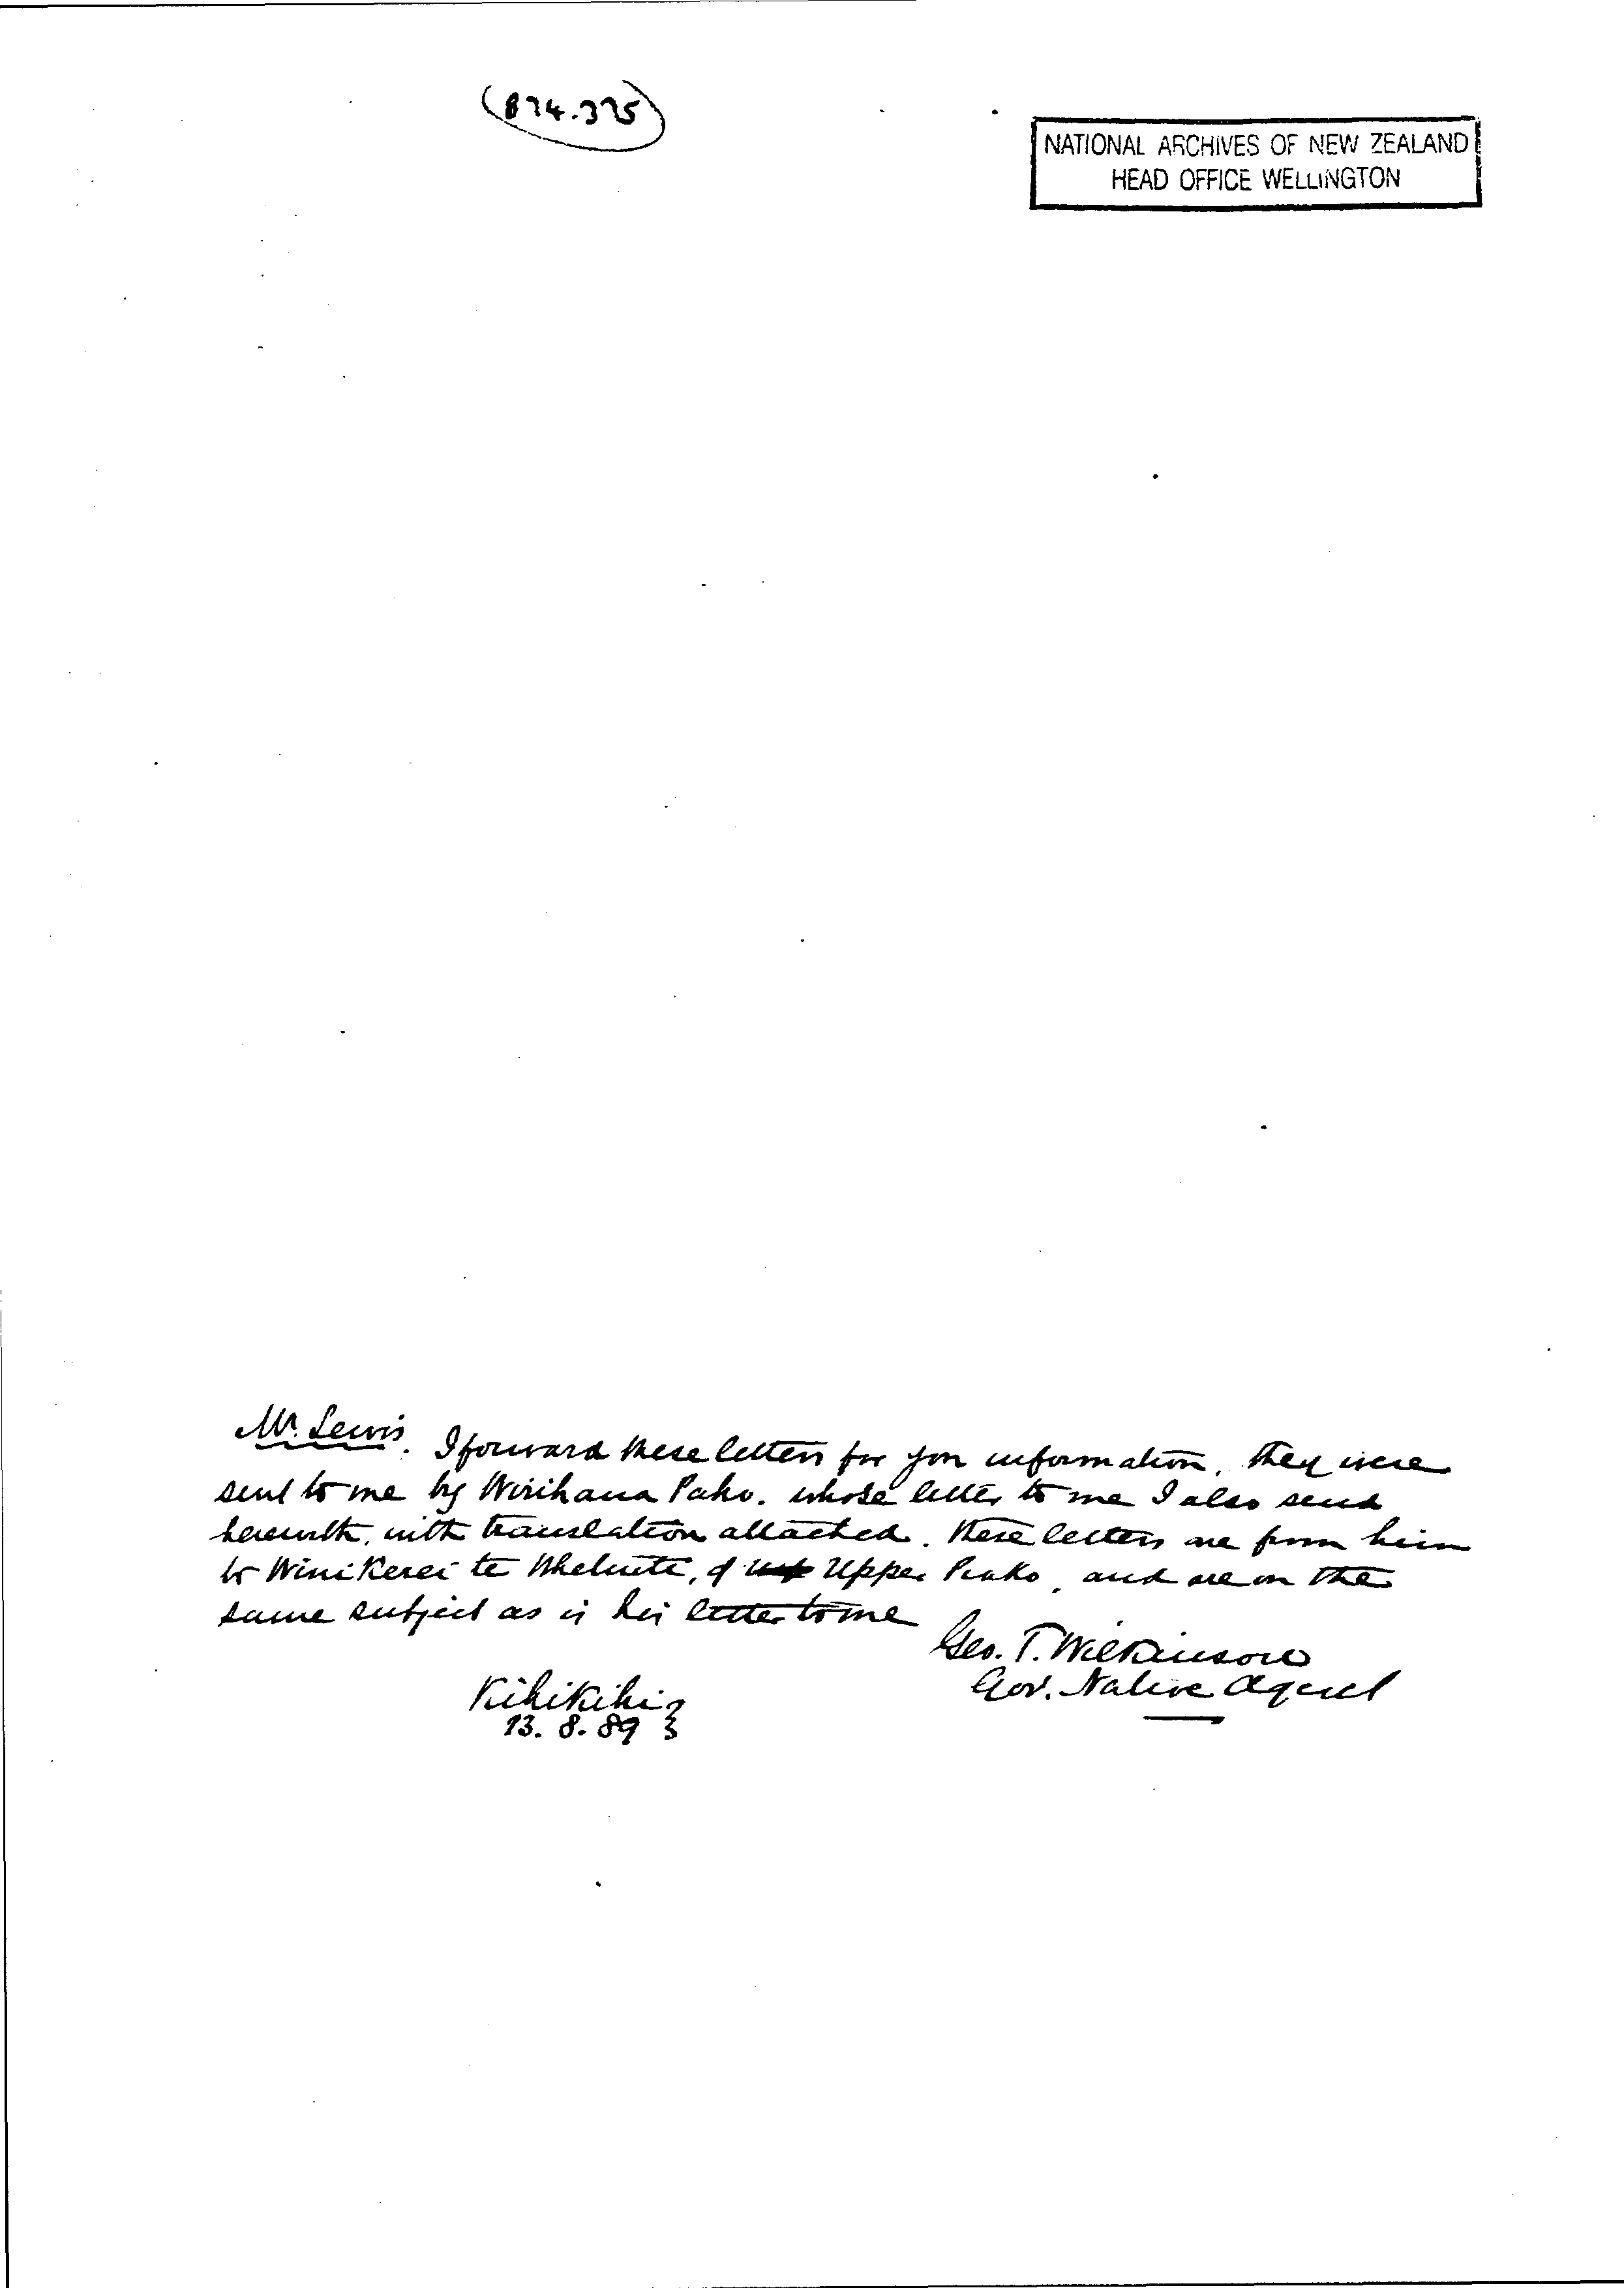 (874.375)
NATIONAL ARCHIVES OF NEW ZEALAND
HEAD OFFICE WELLINGTON
Mr. Lewis. I forward these letters for your information, they were
sent to me by Wirihana Pako. whose letter to me I also send
herewith, with translation attached. These letters are from him
to Wini Kerei te Whetuiti, of Upper Piako, and are on the
same subject as is his letter to me
Geo. T. Wilkinson
Gov. Native Agent
Kihikihi
13. 8. 89